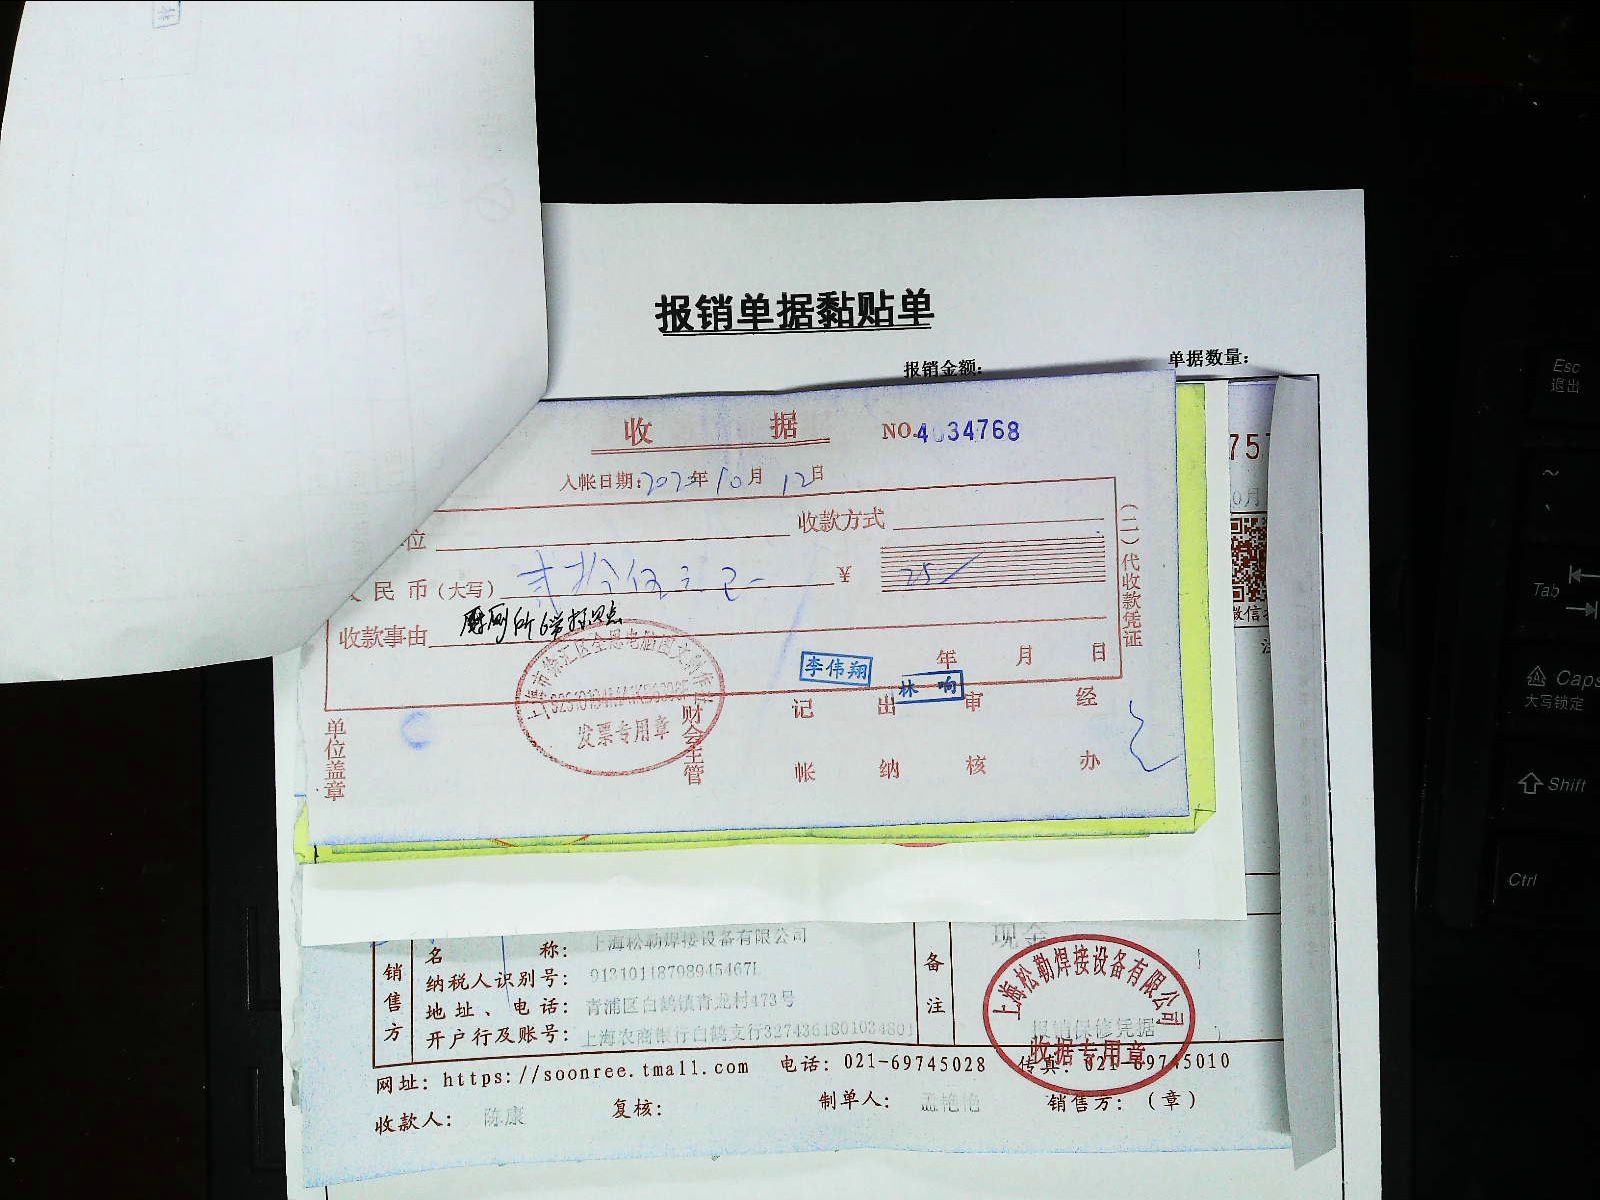 报销单据黏贴单
报销金额: 单据数量:
收 据 NO.4034768
入帐日期: 2020年10月12日
位 收款方式
民 币（大写） 贰拾伍元 ¥ 25
收款事由
年 月 日
李伟翔
林 响
（二）代收款凭证
发票专用章
单位盖章 财会主管 记帐 出纳 审核 经办
757
0月
微信扫
现金
销售方
名 称: 上海松勒焊接设备有限公司
纳税人识别号: 91310118798945467L
地址、电话: 青浦区白鹤镇青龙村473号
开户行及账号: 上海农商银行白鹤支行3274361801034801
备注
上海松勒焊接设备有限公司
报销保修凭据
收据专用章
网址: https://soonree.tmall.com 电话: 021-69745028 传真: 021-69745010
收款人: 陈康 复核: 制单人: 孟艳艳 销售方:（章）
Esc
退出
~
Tab
Caps
大写锁定
Shift
Ctrl